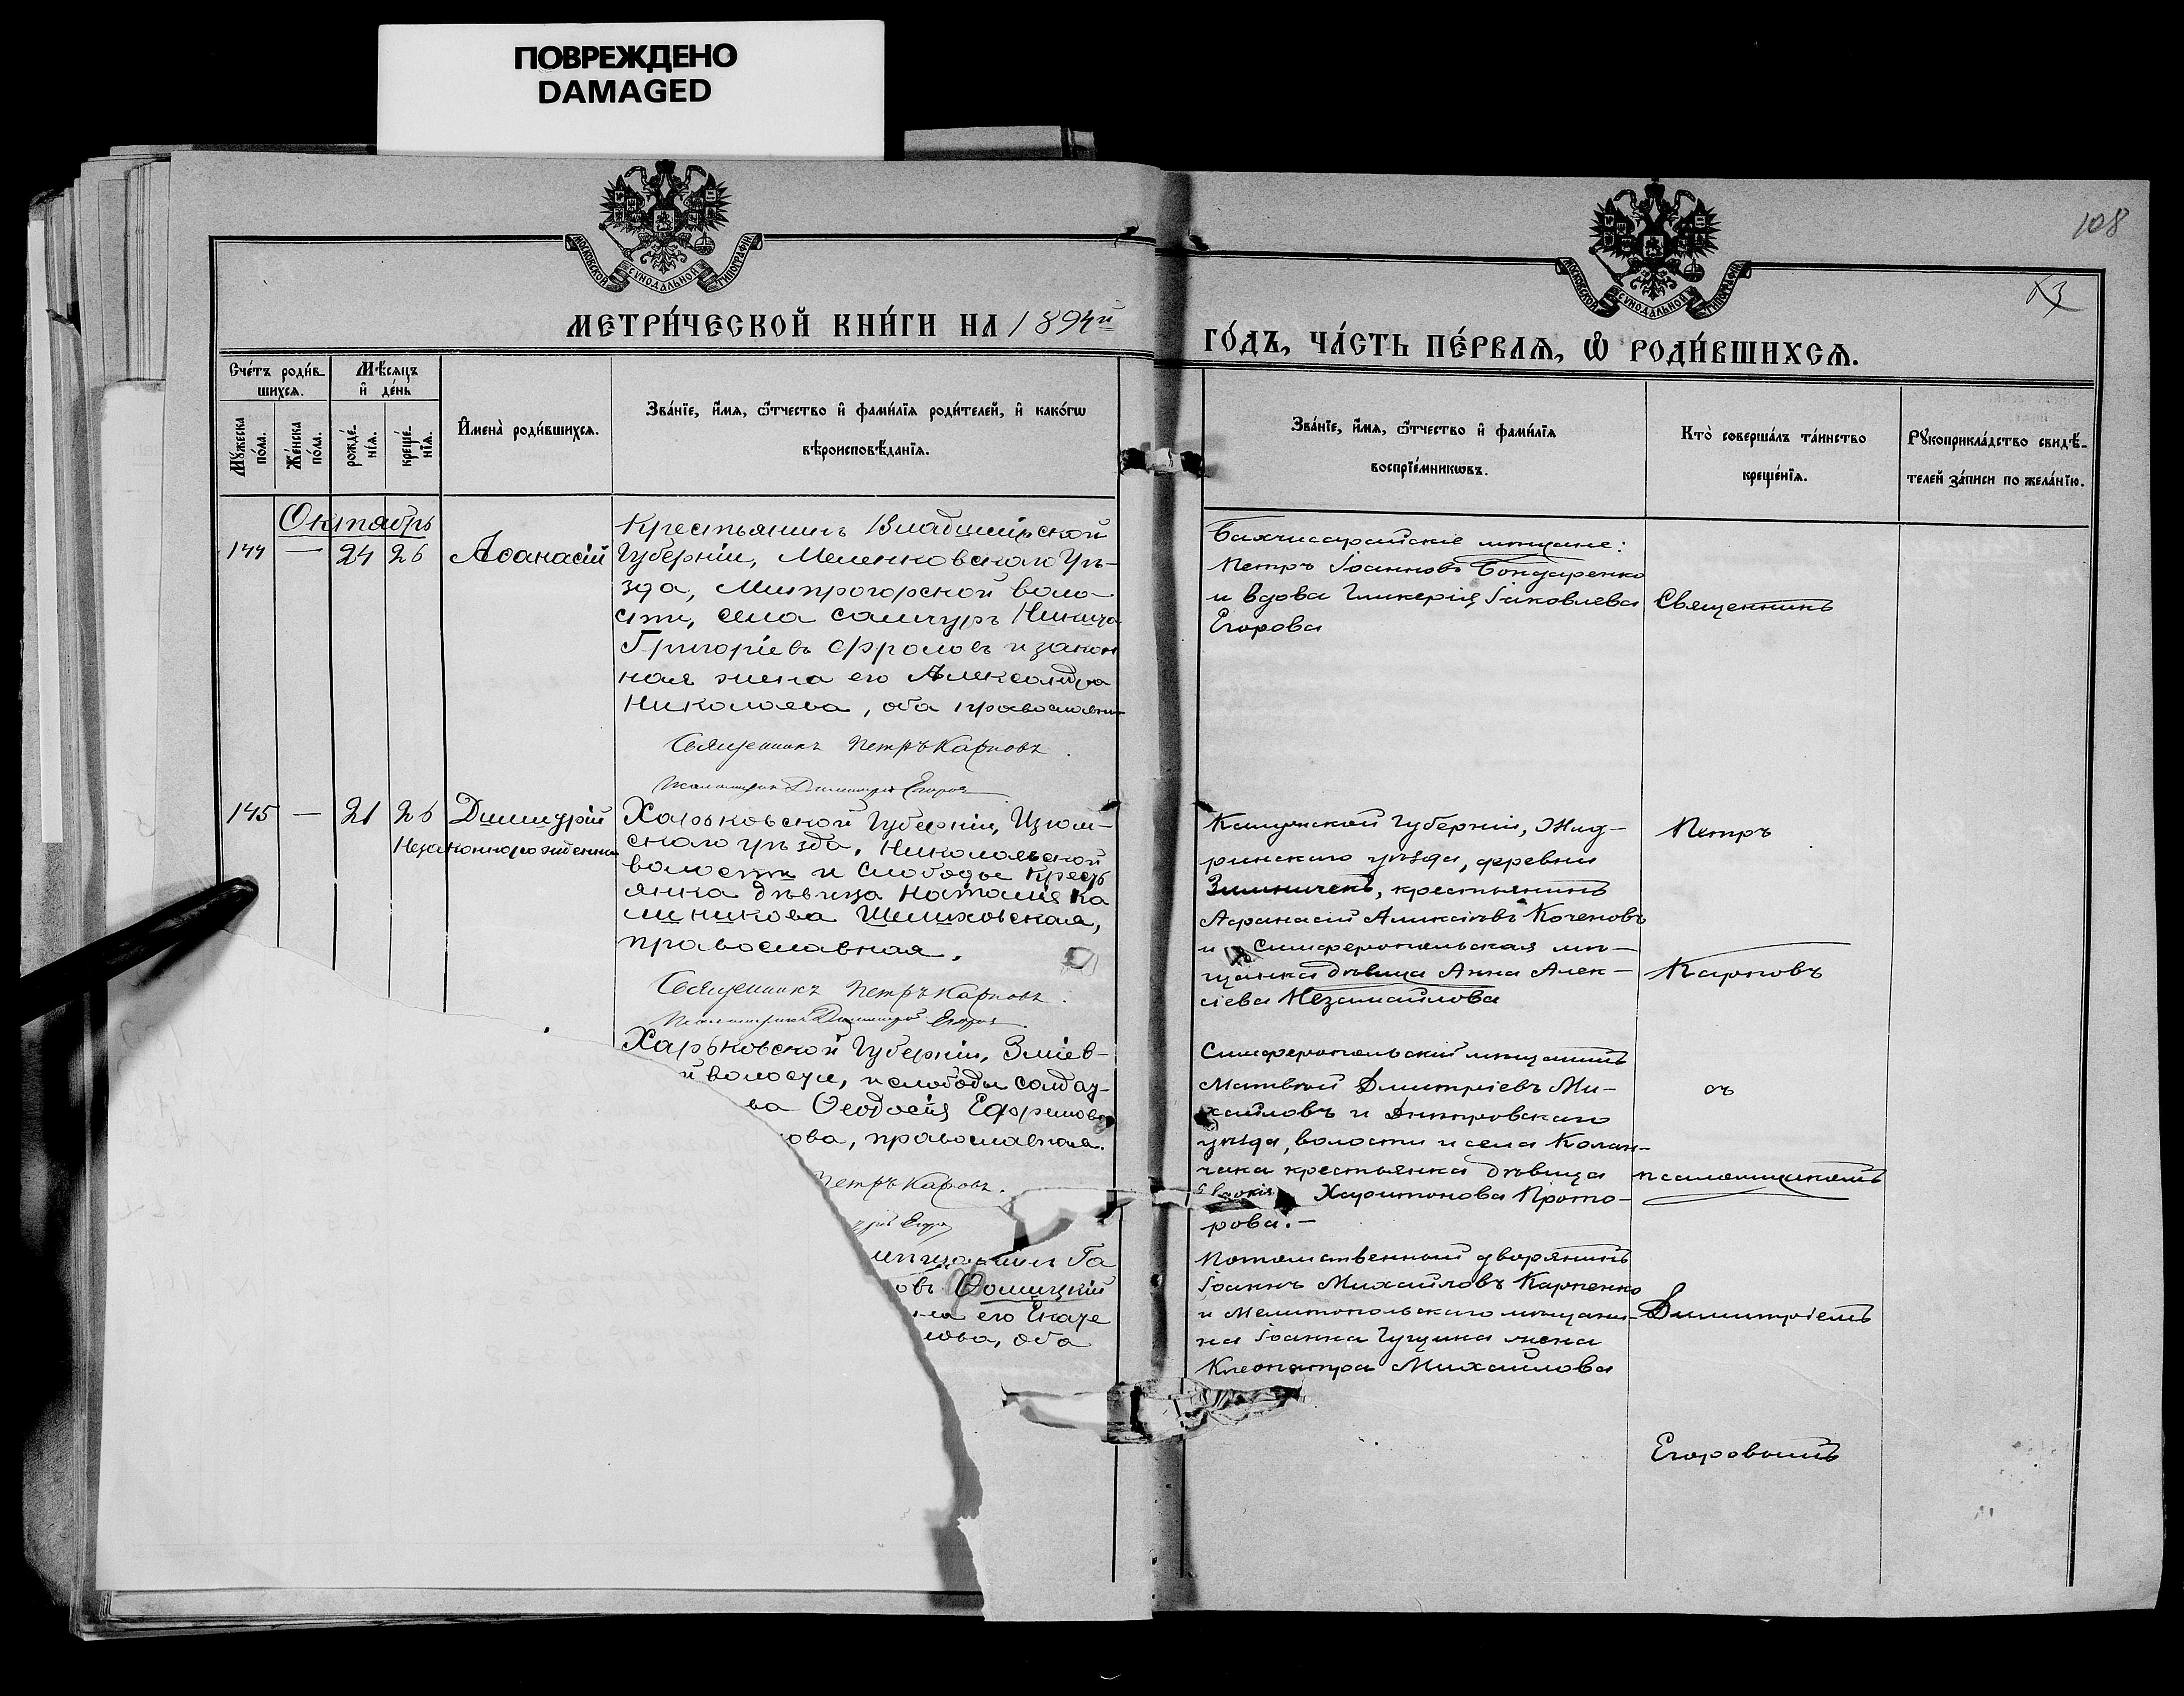 ПОВРЕЖДЕНО
DAMAGED
108
МОСКОВСКОЙ СѴНОДАЛЬНОЙ ТИПОГРАФІИ
МОСКОВСКОЙ СѴНОДАЛЬНОЙ ТИПОГРАФІИ
МЕТРИ́ЧЕСКОЙ КНИ́ГИ НА 1894й
ГО́ДЪ, ЧА́СТЬ ПЕ́РВАѦ, Ѡ РОДИ́ВШИХСѦ.
Сче́тъ роди́в
шихсѧ.
Мѣ́сѧцъ
и де́нь
Мꙋ́жеска
по́ла.
Же́нска
по́ла.
рожде́-
нїѧ.
креще́-
нїѧ.
Имена̀ роди́вшихсѧ.
Зва́нїе, и́мѧ, ѻ́тчество и фами́лїѧ роди́телей, и како́гѡ
вѣроисповѣ́данїѧ.
Зва́нїе, и́мѧ, ѻ́тчество и фами́лїѧ
воспрїе́мникѡвъ.
Кто̀ соверша́лъ та́инство
креще́нїѧ.
Рꙋкоприкла́дство свидѣ́-
телей за́писи по жела́нїю.
Октябрь
144 — 24 26 Аѳанасій
Крестьянинъ Владимірской
Губерніи, Меленковскаго Уѣ-
зда, воло-
сти, села Никита
Григоріевъ Фроловъ и закон
ная жена его Александра
Николаева, оба православны
Священникъ Петръ Карповъ.
Псаломщикъ Димитрій Егоровъ
Бахчисарайскіе мѣщане:
Петръ Іоанновъ Бондаренко
и вдова Гликерія Іаковлева
Егорова
Священникъ
145 — 21 26 Димитрій
Незаконнорожденный
Харьковской Губерніи, Изюм-
скаго уѣзда, Никольской
волости и слободы кресть
янка дѣвица Наталія Ка
Шелиховская,
православная.
Священникъ Петръ Карповъ.
Псаломщикъ Димитрій Егоровъ.
Калужской Губерніи, Жиз-
ринскаго уѣзда, деревни
Зимничекъ, крестьянинъ
Афанасій Алексіевъ Коченовъ
и Симферопольская мѣ-
щанка дѣвица Анна Алек-
сіева Незамаилова
Петръ
Карповъ
Харьковской Губерніи, Зміев-
й волости, и слободы солдат-
ва Ѳеодосія Ефремова
ова, православная.
Петръ Карповъ.
Симферопольскій мѣщанинъ
Матвей Димитріевъ Ми-
хайловъ и Днѣпровскаго
уѣзда, волости и села Калан-
чака крестьянка дѣвица
Харитонова Прото-
рова.—
съ
псаломщикомъ
мѣщанинъ Га
овъ Ѳомицкій
на его Екате
лова, оба
Потомственный дворянинъ
Іоаннъ Михайловъ Карпенко
и Мелитопольскаго мѣщани-
на Іоанна Гущина жена
Клеопатра Михайлова
Димитріемъ
Егоровымъ